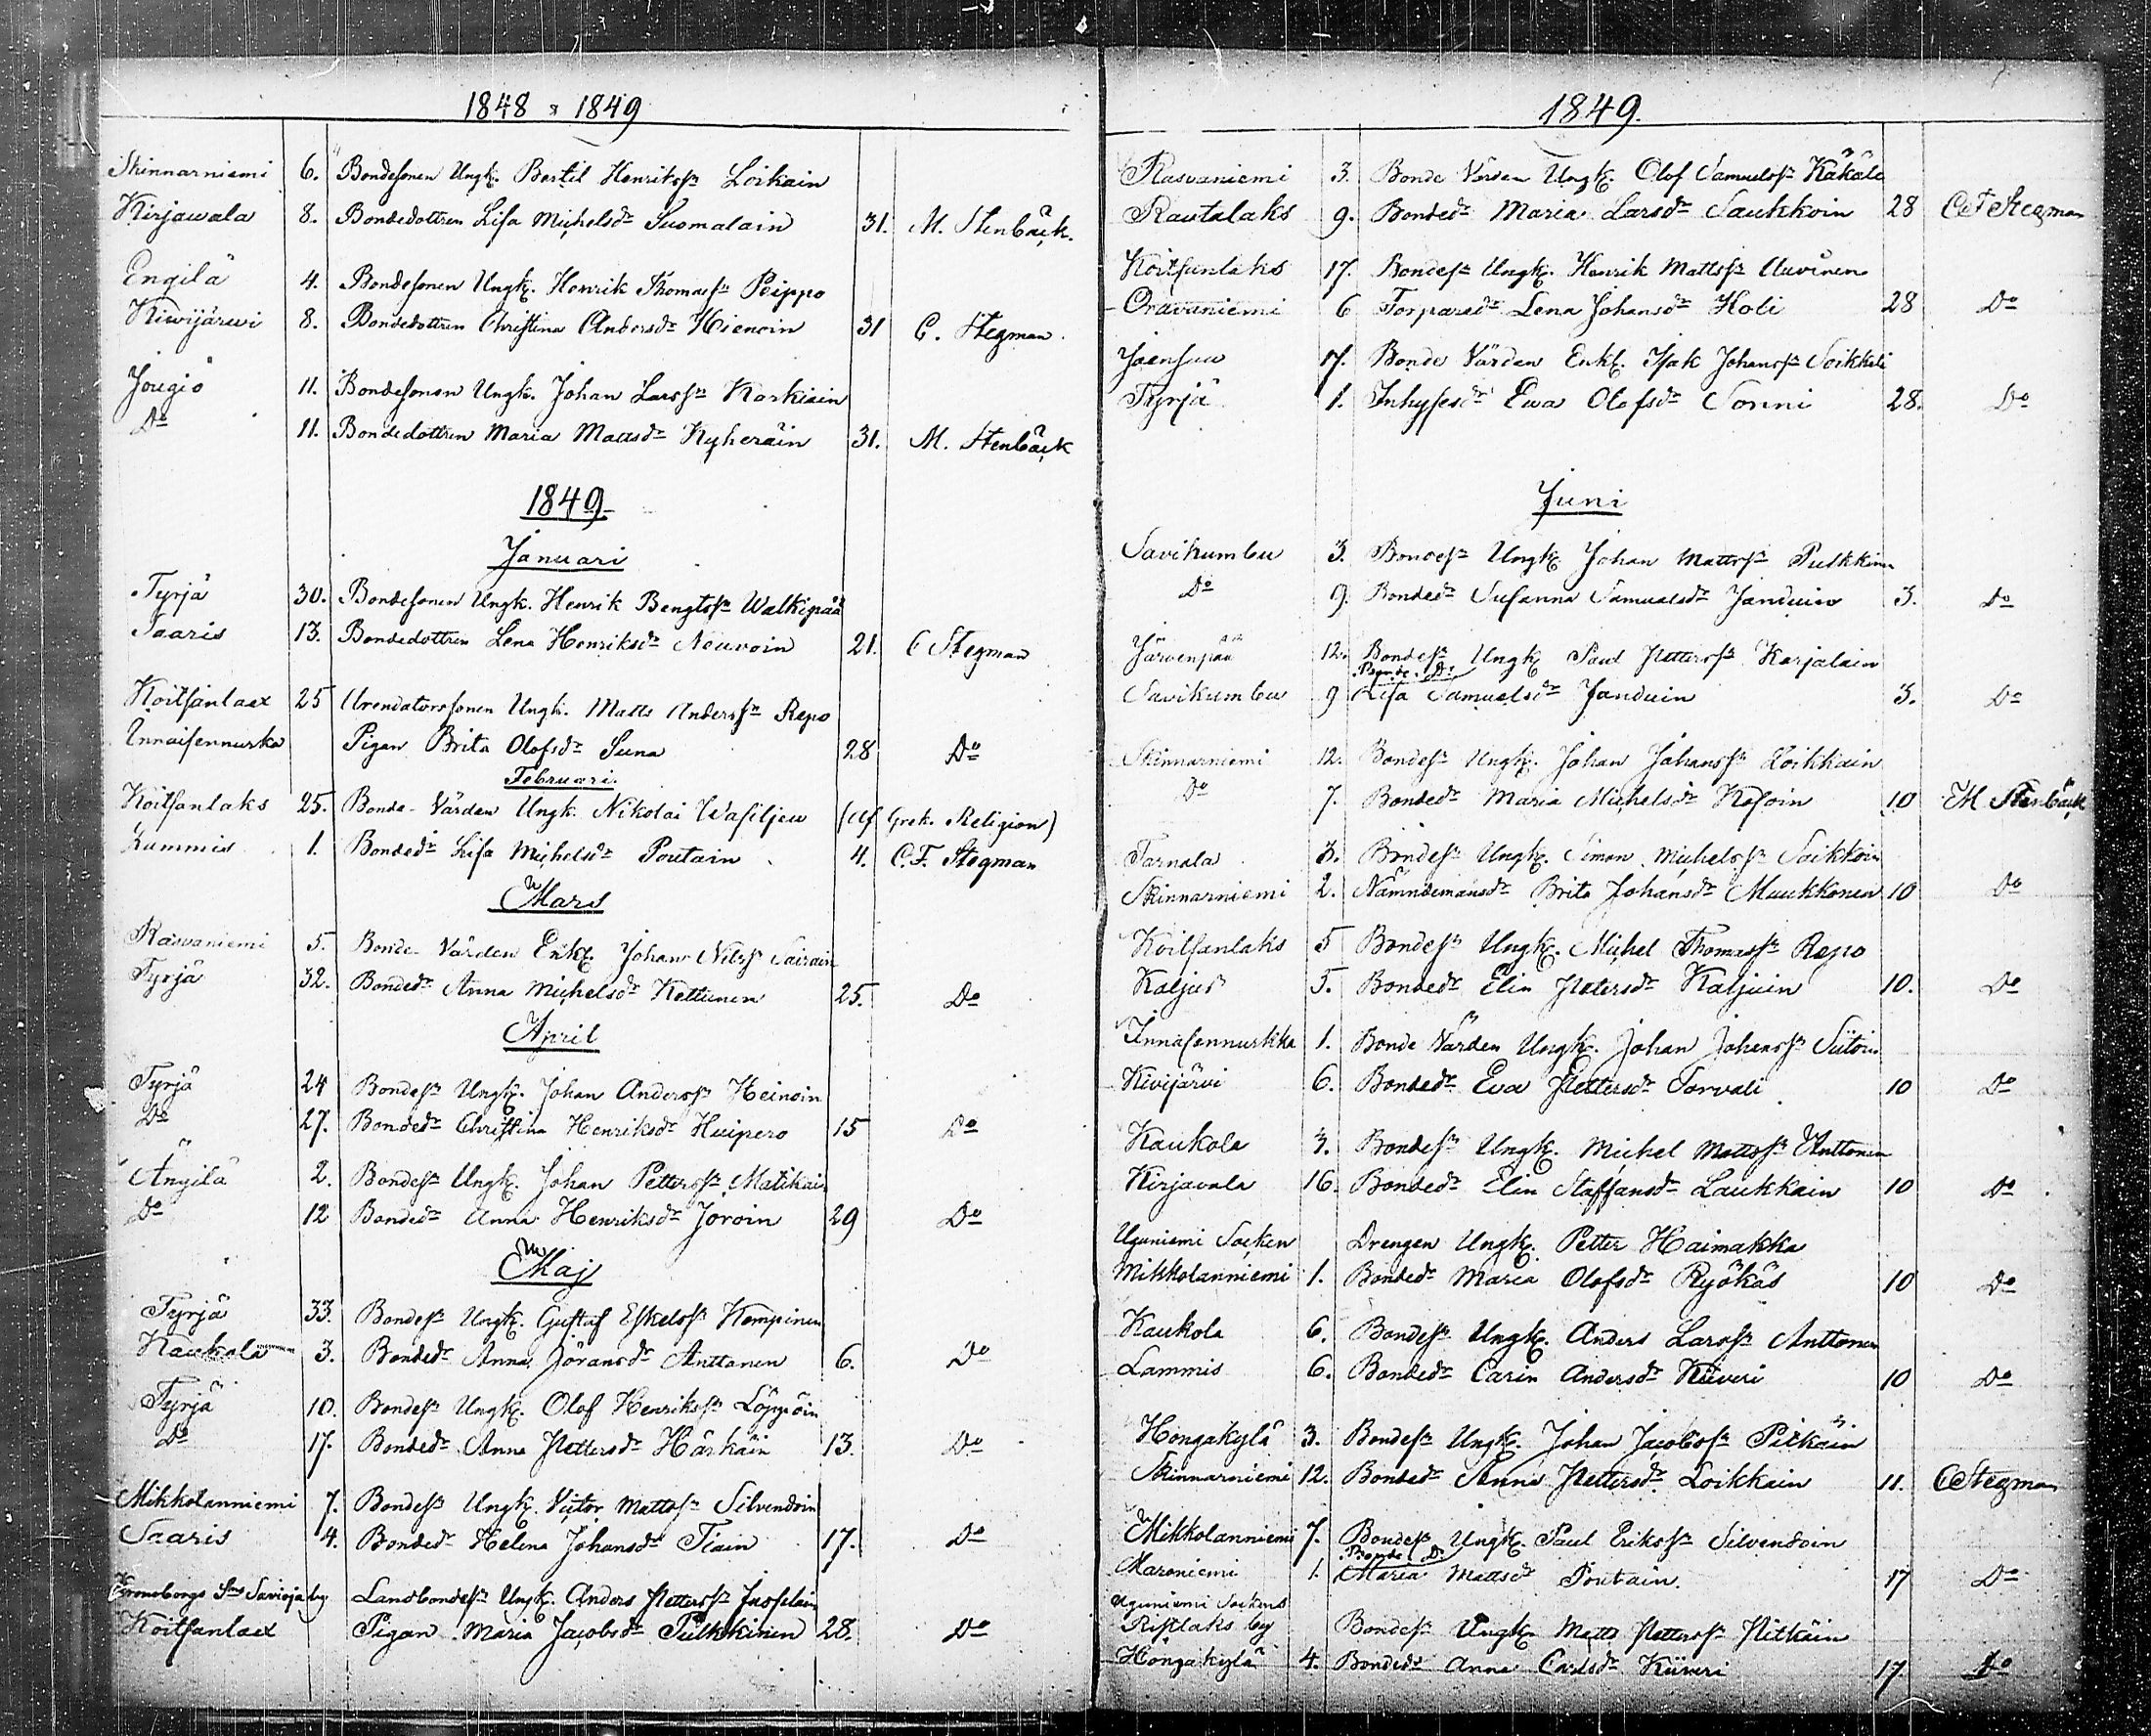 1848 & 1849
Skinnarniemi 6. Bondesonen Ungk. Bertil Henrikss:n Loikain
Kirjawala 8. Bondedottren Lisa Michelsd:r Suomalain 31. M. Stenbäck.
Engilä 4. Bondesonen Ungk. Henrik Thomass:n Peippo
Kiwijärwi 8. Bondedottren Christina Andersd:r Hienoin 31 C. Stegman.
Jougio 11. Bondesonen Ungk. Johan Larss:n Karkiain
D:o 11. Bondedottren Maria Mattsd:r Kyheräin 31. M. Stenbäck
1849
Januari
Tyrjä 30. Bondesonen Ungk. Henrik Bengtss:n Walkipää
Saaris 13. Bondedottren Lena Henriksd:r Neuvoin 21. C Stegman
Koitsanlax 25 Arendatorssonen Ungk. Matts Anderss:n Repo
Innaisennurka Pigan Brita Olofsd:r Suna 28 D:o
Februari.
Koitsanlaks 25. Bonde-Värden Ungk. Nikolai Wasiljew (af Grek. Religion)
Lummis 1. Bonded:r Lisa Michelsd:r Poutain 4. C.F. Stegman
Mars
Rasvaniemi 5. Bonde-Värden Enkl. Johan Nilss:n Sairain
Tyrjä 32. Bonded:r Anna Michelsd:r Kettunen 25. D:o
April
Tyrjä 24 Bondes:n Ungk. Johan Anderss:n Heinoin
D:o 27. Bonded:r Christina Henriksd:r Huipero 15 D:o
Ängilä 2. Bondes:n Ungk. Johan Petterss:n Matikain
D:o 12 Bonded:r Anna Henriksd:r Joroin 29 D:o
Maj
Tyrjä 33. Bondes:n Ungk. Gustaf Eskelss:n Kempinen
Kaukola 3. Bonded:r Anna Göransd:r Anttonen 6. D:o
Tyrjä 10. Bondes:n Ungk. Olof Henrikss:n Löppöin
D:o 17. Bonded:r Anna Pettersd:r Härkäin 13. D:o
Mikkolanniemi 7. Bondes:n Ungk. Victor Mattss:n Silvendoin
Saaris 4. Bonded:r Helena Johansd:r Tiain 17. D:o
Kronoborgs S:n Savioja by Landbondes:n Ungk. Anders Petterss:n
Koitsanlax Pigan Maria Jacobsd:r Pulkkinen 28. D:o
1849.
Rasvaniemi 3. Bonde Värden Ungk. Olof Samuelss:n Käkälä
Rautalaks 9. Bonded:r Maria Larsd:r Saukkoin 28 C.F Stegman
Koitsanlaks 17. Bondes:n Ungk. Henrik Mattss:n Uuvinen
Oravaniemi 6 Torpared:r Lena Johansd:r Holi 28 D:o
Joensuu 17. Bonde Värden Enkl. Isak Johanss:n Soikkeli
Tyrjä 1. Inhysesd:r Ewa Olofsd:r Sonni 28. D:o
Juni
Savikumbu 3. Bondes:n Ungk. Johan Mattss:n Pulkkinen
D:o 9. Bonded:r Susanna Samuelsd:r Janduin 3. D:o
Järvenpää 12. Bondes:n Ungk. Paul Petterss:n Karjalain
Bonde D:r
Savikumbu 9 Lisa Samuelsd:r Janduin 3. D:o
Skinnarniemi 12. Bondes:n Ungk. Johan Johanss:n Loikkain
D:o 7. Bonded:r Maria Michelsd:r Kosoin 10 M. Stenbäck
Tarnala 3. Bondes:n Ungk. Simon Michelss:n Soikkoin
Skinnarniemi 2. Nämndemansd:r Brita Johansd:r Muukkonen 10 D:o
Koitsanlaks 5 Bondes:n Ungk. Michel Thomass:n Repo
Kaljus 5. Bonded:r Elin Petersd:r Kaljuin 10. D:o
Innasennurkka 1. Bonde Värden Ungk. Johan Johanss:n Siitoin
Kivijärvi 6. Bonded:r Eva Pettersd:r Torvali 10 D:o
Kaukola 3. Bondes:n Ungk. Michel Mattss:n Anttonen
Kirjavala 16. Bonded:r Elin Staffansd:r Laukkain 10 D:o
Uguniemi Socken Drengen Ungk. Petter Haimakka
Mikkolanniemi 1. Bonded:r Maria Olofsd:r Ryökäs 10 D:o
Kaukola 6. Bondes:n Ungk. Anders Larss:n Anttonen
Lammis 6. Bonded:r Carin Andersd:r Kiiveri 10 D:o
Hongakylä 3. Bondes:n Ungk. Johan Jacobss:n Pitkäin
Skinnarniemi 12. Bonded:r Anna Pettersd:r Loikkain 11. C Stegman
Mikkolanniemi 7. Bondes:n Ungk. Paul Erikss:n Silvendoin
Bonde D:r
Maroniemi 1. Maria Mattsd:r Poutain. 17 D:o
Uguniemi Sockens
Ristlaks by Bondes:n Ungk. Matts Petterss:n Pitkäin
Hongakylä 4. Bonded:r Anna Carlsd:r Kiiveri 17 D:o